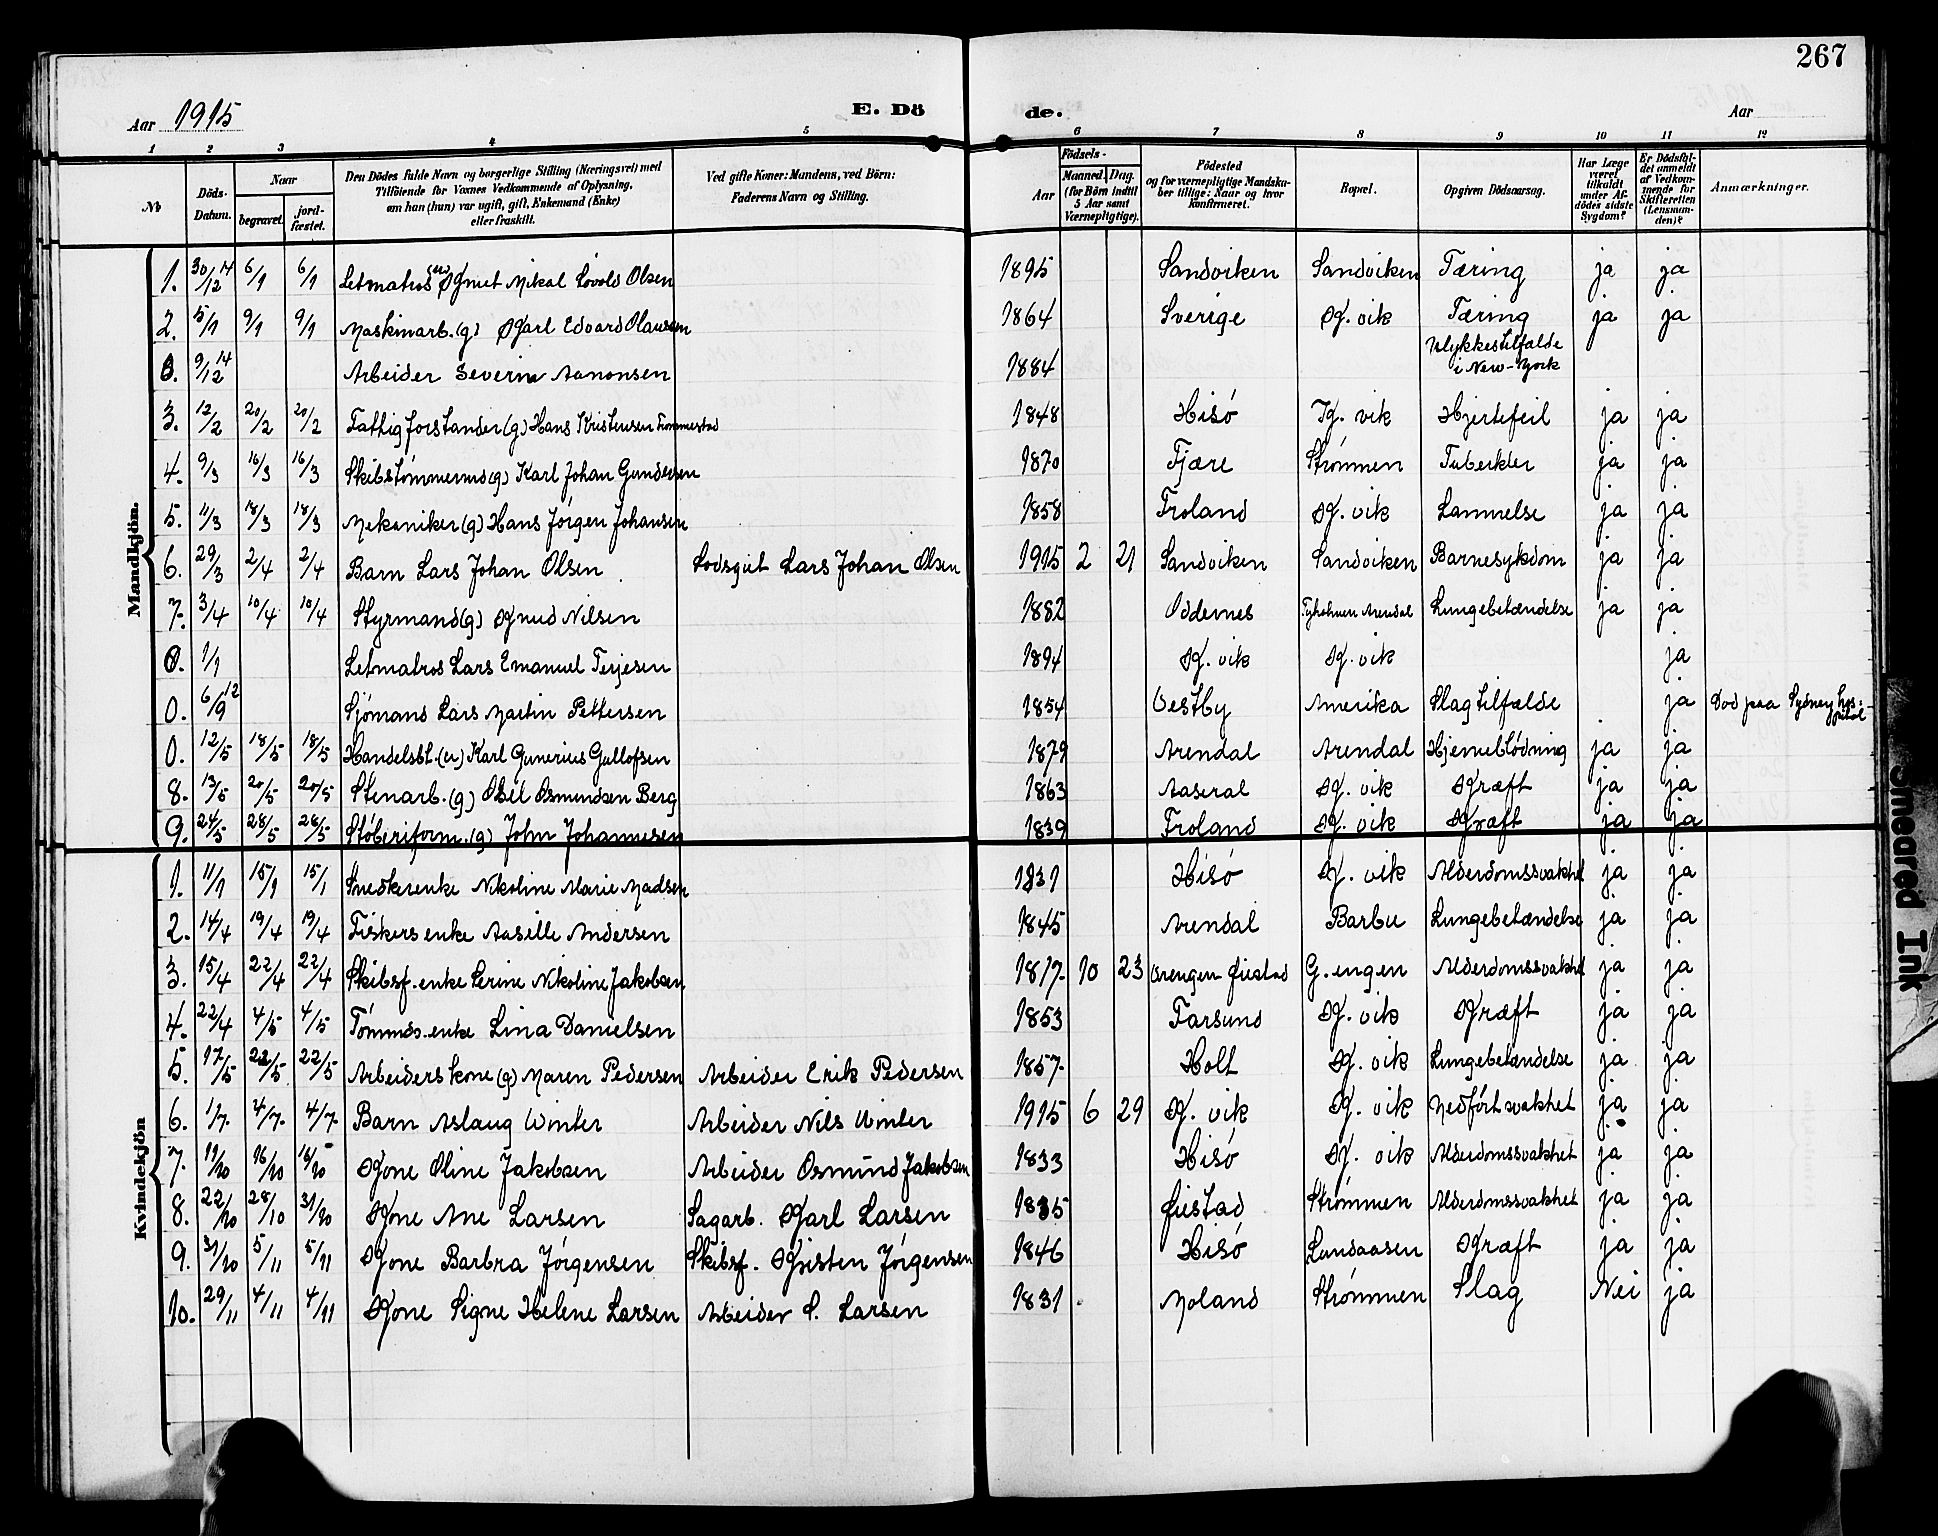 267
Aar 1915
E. Dö de.
Aar
1 2 3 4 5 6 7 8 9 10 11 12
No
Döds-Datum.
Naar
begravet.
jord-fæstet.
Den Dödes fulde Navn og borgerlige Stilling (Næringsvei) med
Tilföiende for Voxnes Vedkommende af Oplysning,
om han (hun) var ugift, gift, Enkemand (Enke)
eller fraskilt.
Ved gifte Koner: Mandens, ved Börn:
Faderens Navn og Stilling.
Födsels-
Aar
Maaned. Dag.
(for Börn indtil
5 Aar samt
Værnepligtige).
Födested
og for værnepligtige Mandska-
ber tillige: Naar og hvor
konfirmeret.
Bopæl.
Opgiven Dödsaarsag.
Har Læge
været
tilkaldt
under Af-
dödes sidste
Sygdom?
Er Dödsfal-
det anmeldt
af Vedkom-
mende for
Skifteretten
(Lensman-
den)?
Anmærkninger.
Mandkjön.
1. 30/12 14 6/1 6/1 Letmatros Knut Mikal Løvold Olsen 1895 Sandviken Sandviken Tæring ja ja
2. 5/1 9/1 9/1 Maskinarb. (g) Karl Edvard Olausen 1864 Sverige K. vik Tæring ja ja
0. 9/12 14 Arbeider Severin Aanonsen 1884 Ulykkestilfælde
i New-York
3. 12/2 20/2 20/2 Fattigforstander (g) Hans Kristensen Trommestad 1848 Hisö K. vik Hjertefeil ja ja
4. 9/3 16/3 16/3 Skibstömmermd (g) Karl Johan Gundersen 1870 Fjære Strömmen Tuberkler ja ja
5. 11/3 18/3 18/3 Mekaniker (g) Hans Jörgen Johansen 1858 Froland K. vik Lammelse ja ja
6. 29/3 2/4 2/4 Barn Lars Johan Olsen Lodsgut Lars Johan Olsen 1915 2 21 Sandviken Sandviken Barnesykdom ja ja
7. 3/4 10/4 10/4 Styrmand (g) Knud Nilsen 1882 Oddernes Tyholmen Arendal Lungebetændelse ja ja
0. 1/1 Letmatros Lars Emanuel Terjesen 1894 K. vik K. vik ja
0. 6/9 12 Sjömand Lars Martin Pettersen 1854 Vestby Amerika Slagtilfælde ja Död paa Sydney Hos-
pital
0. 12/5 18/5 18/5 Handelsbt. Karl Gunerius Gullofsen 1879 Arendal Arendal Hjerneblödning ja ja
8. 13/5 20/5 20/5 Stenarb. (g) Osmundsen Berg 1863 Aaseral K. vik Kræft ja ja
9. 24/5 28/5 28/5 Stöberiform. (g) John Johannesen 1839 Froland K. vik Kræft ja ja
Kvindekjön
1. 11/1 15/1 15/1 Snedkerenke Nikoline Marie Madsen 1831 Hisö K. vik Alderdomssvakhet ja ja
2. 14/4 19/4 19/4 Fiskers enke Aasille Andersen 1845 Arendal Barbu Lungebetændelse ja ja
3. 15/4 22/4 22/4 Skibsf. enke Serine Nikoline Jakobsen 1817 10 23 Vrengen Öiestad G. engen Alderdomssvakhet ja ja
4. 22/4 4/5 4/5 Tömmds. enke Lina Danielsen 1853 Farsund K. vik Kræft ja ja
5. 17/5 22/5 22/5 Arbeiders kone (g) Maren Pedersen Arbeider Erik Pedersen 1857 Holt K. vik Lungebetændelse ja ja
6. 1/7 4/7 4/7 Barn Aslaug Winter Arbeider Nils Winter 1915 6 29 K. vik K. vik Medfört svakhet ja ja
7. 11/10 16/10 16/10 Kone Oline Jakobsen Arbeider Osmund Jakobsen 1833 Hisö K. vik Alderdomssvakhet ja ja
8. 22/10 28/10 31/10 Kone Ane Larsen Sagarb. Karl Larsen 1835 Öiestad Strömmen Alderdomssvakhet ja ja
9. 31/10 5/11 5/11 Kone Barbra Jörgensen Skibsf. Kristen Jörgensen 1846 Hisö Lundaasen Kræft ja ja
10. 29/11 4/11 4/11 Kone Signe Helene Larsen Arbeider S. Larsen 1831 Moland Strömmen Slag Nei ja
Smeared Ink